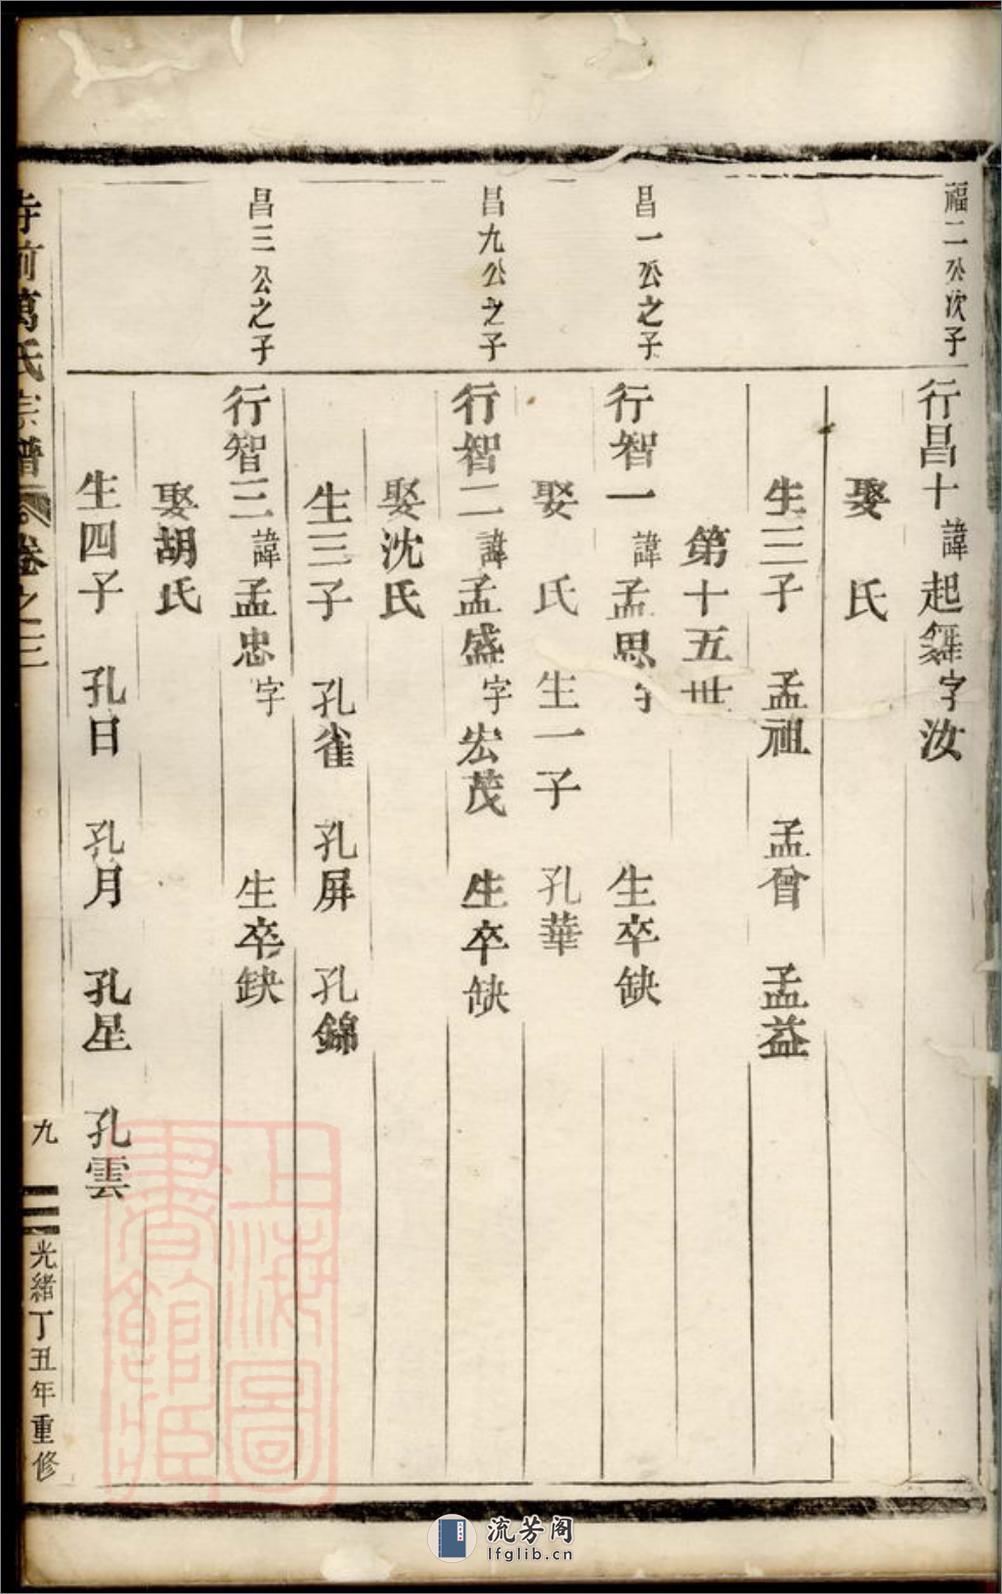 福二公次子
行昌十諱起舞字汝
娶 氏
生三子 孟祖 孟曾 孟益
第十五世
昌一公之子
行智一諱孟思字 生卒缺
娶 氏 生一子 孔華
昌九公之子
行智二諱孟盛字宏茂 生卒缺
娶沈氏
生三子 孔雀 孔屏 孔錦
昌三公之子
行智三諱孟忠字 生卒缺
娶胡氏
生四子 孔日 孔月 孔星 孔雲
寺前萬氏宗譜 卷之三 九 光緒丁丑年重修
上海圖書館藏
流芳阁
lfglib.cn